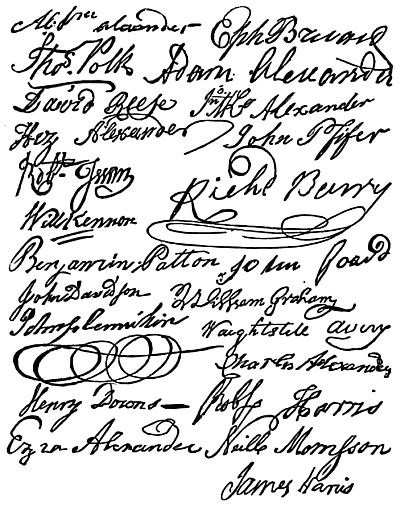 Alexander Eph Brevard
Thos. Polk Adam Alexander
David Reese Jno. McK Alexander
Hez Alexander John Phifer
Robt. Irwin
Richd Barry
Will Kennon
Benjamin Patton John Foard
John Davidson William Graham
John Flenniken Waightstill Avery
Charles Alexander
Henry Downs— Robt Harris
Ezra Alexander Neill Morrison
James Harris